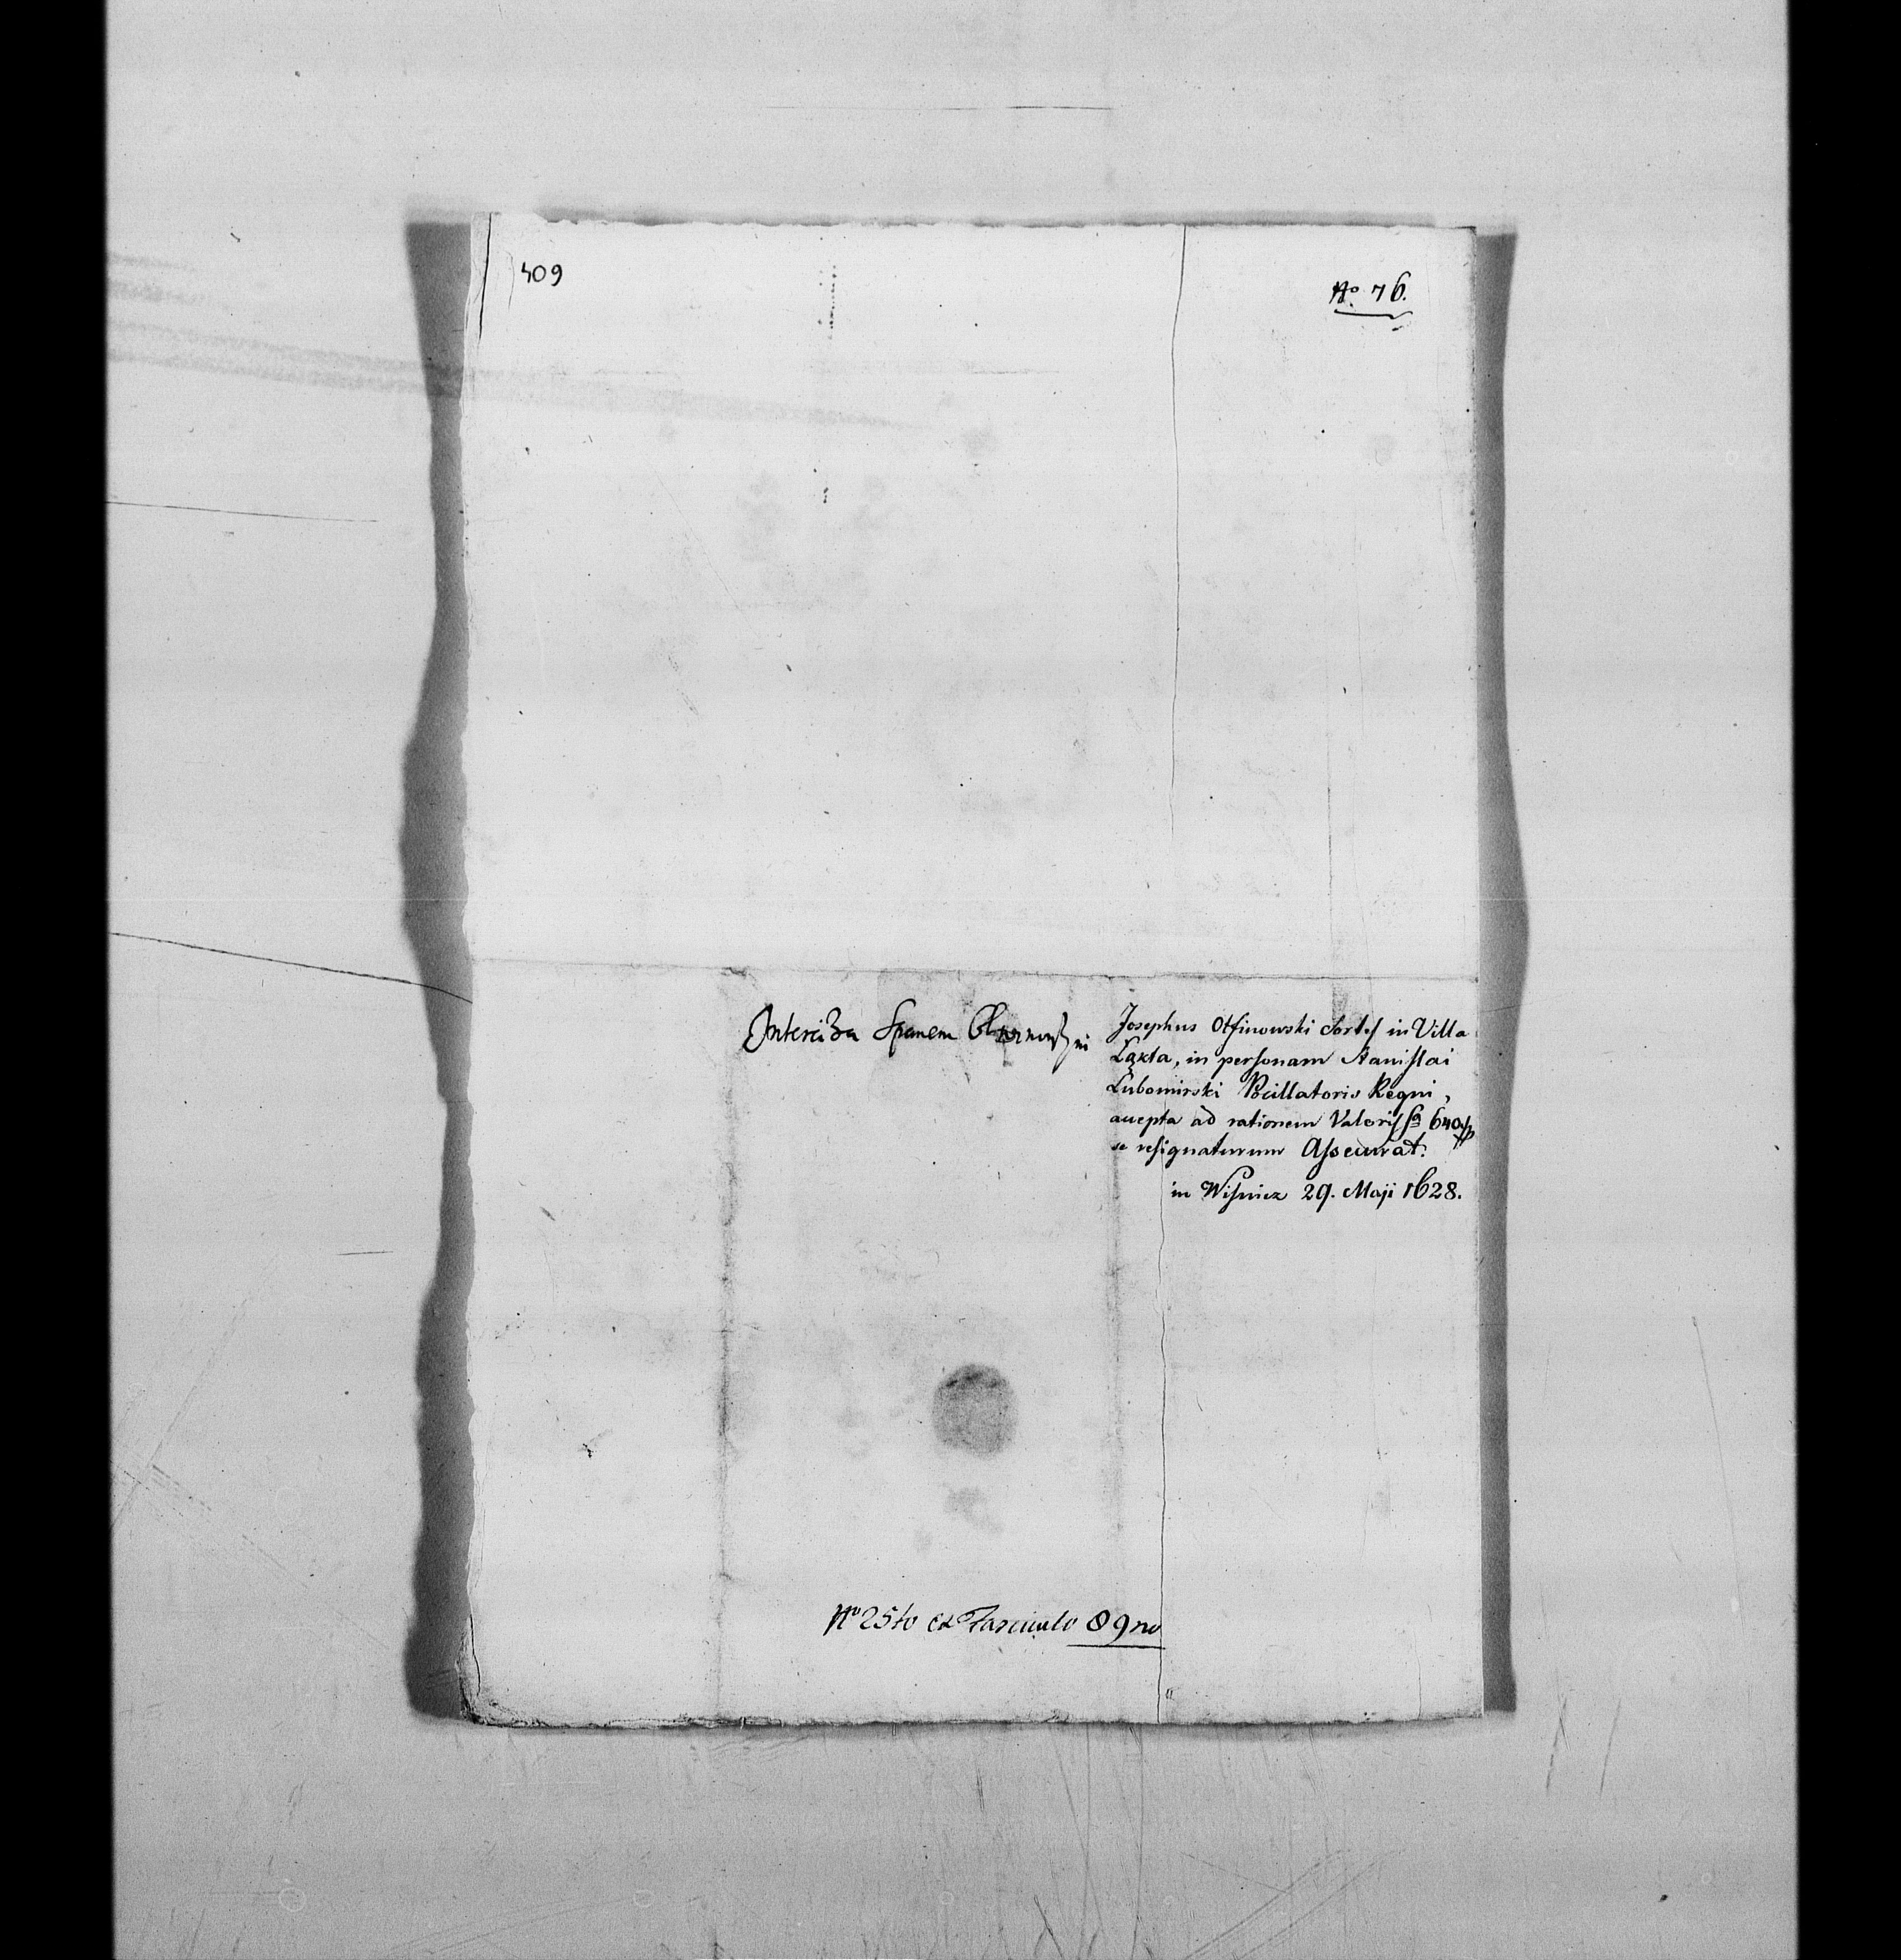 409
No 76.
Interciza Spanem
Josephus Otfinowski Sortes in Villa
Łąkta, in personam Stanislai
Lubomirski Pocillatoris Regni,
accepta ad rationem Valoris fl 640
se resignaturum Assecurat.
in Wisnicz 29. Maji 1628.
No 25to ex Fasciculo 89no